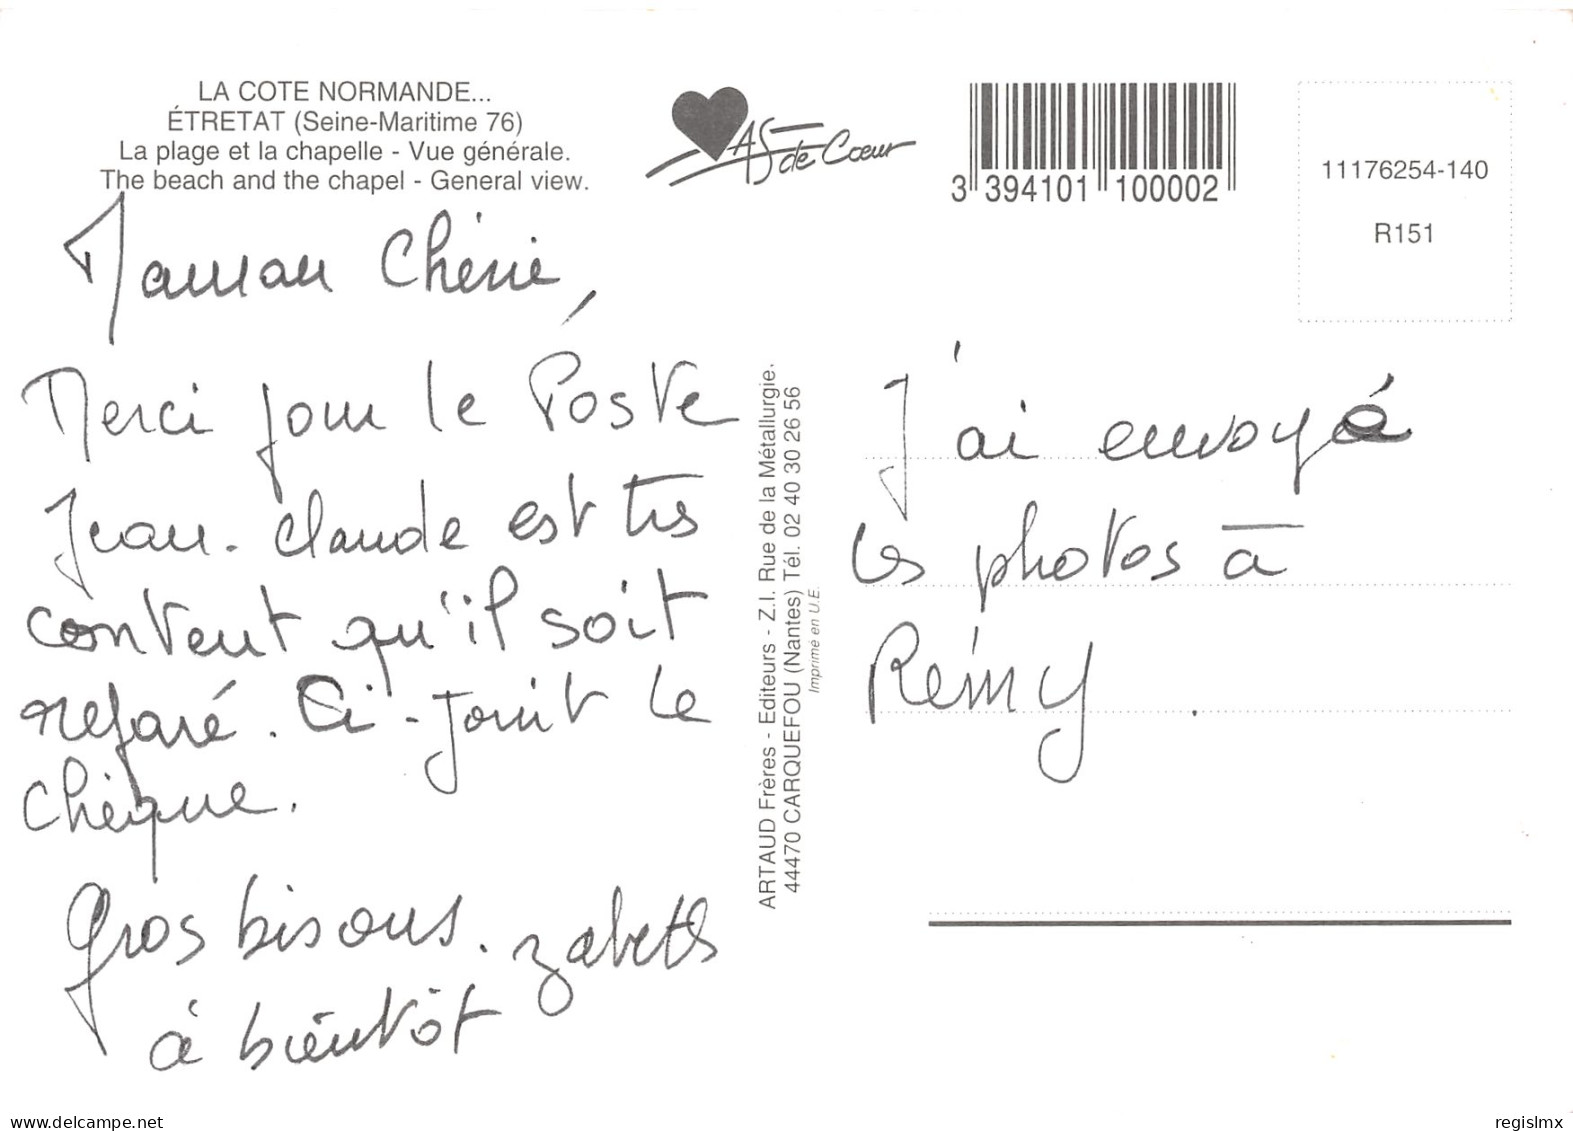 LA COTE NORMANDE...
ÉTRETAT (Seine-Maritime 76)
La plage et la chapelle - Vue générale.
The beach and the chapel - General view.
AS de Cœur
3 394101 100002
11176254-140
R151
Maman Chérie,
Merci pour le Poste
Jean-Claude est très
content qu'il soit
réparé. Ci-joint le
chèque.
Gros bisous. zabeth
à bientôt
ARTAUD Frères - Editeurs - Z.I. Rue de la Métallurgie.
44470 CARQUEFOU (Nantes) Tél. 02 40 30 26 56
Imprimé en U.E.
J'ai envoyé
les photos à
Rémy.
www.delcampe.net
regislmx